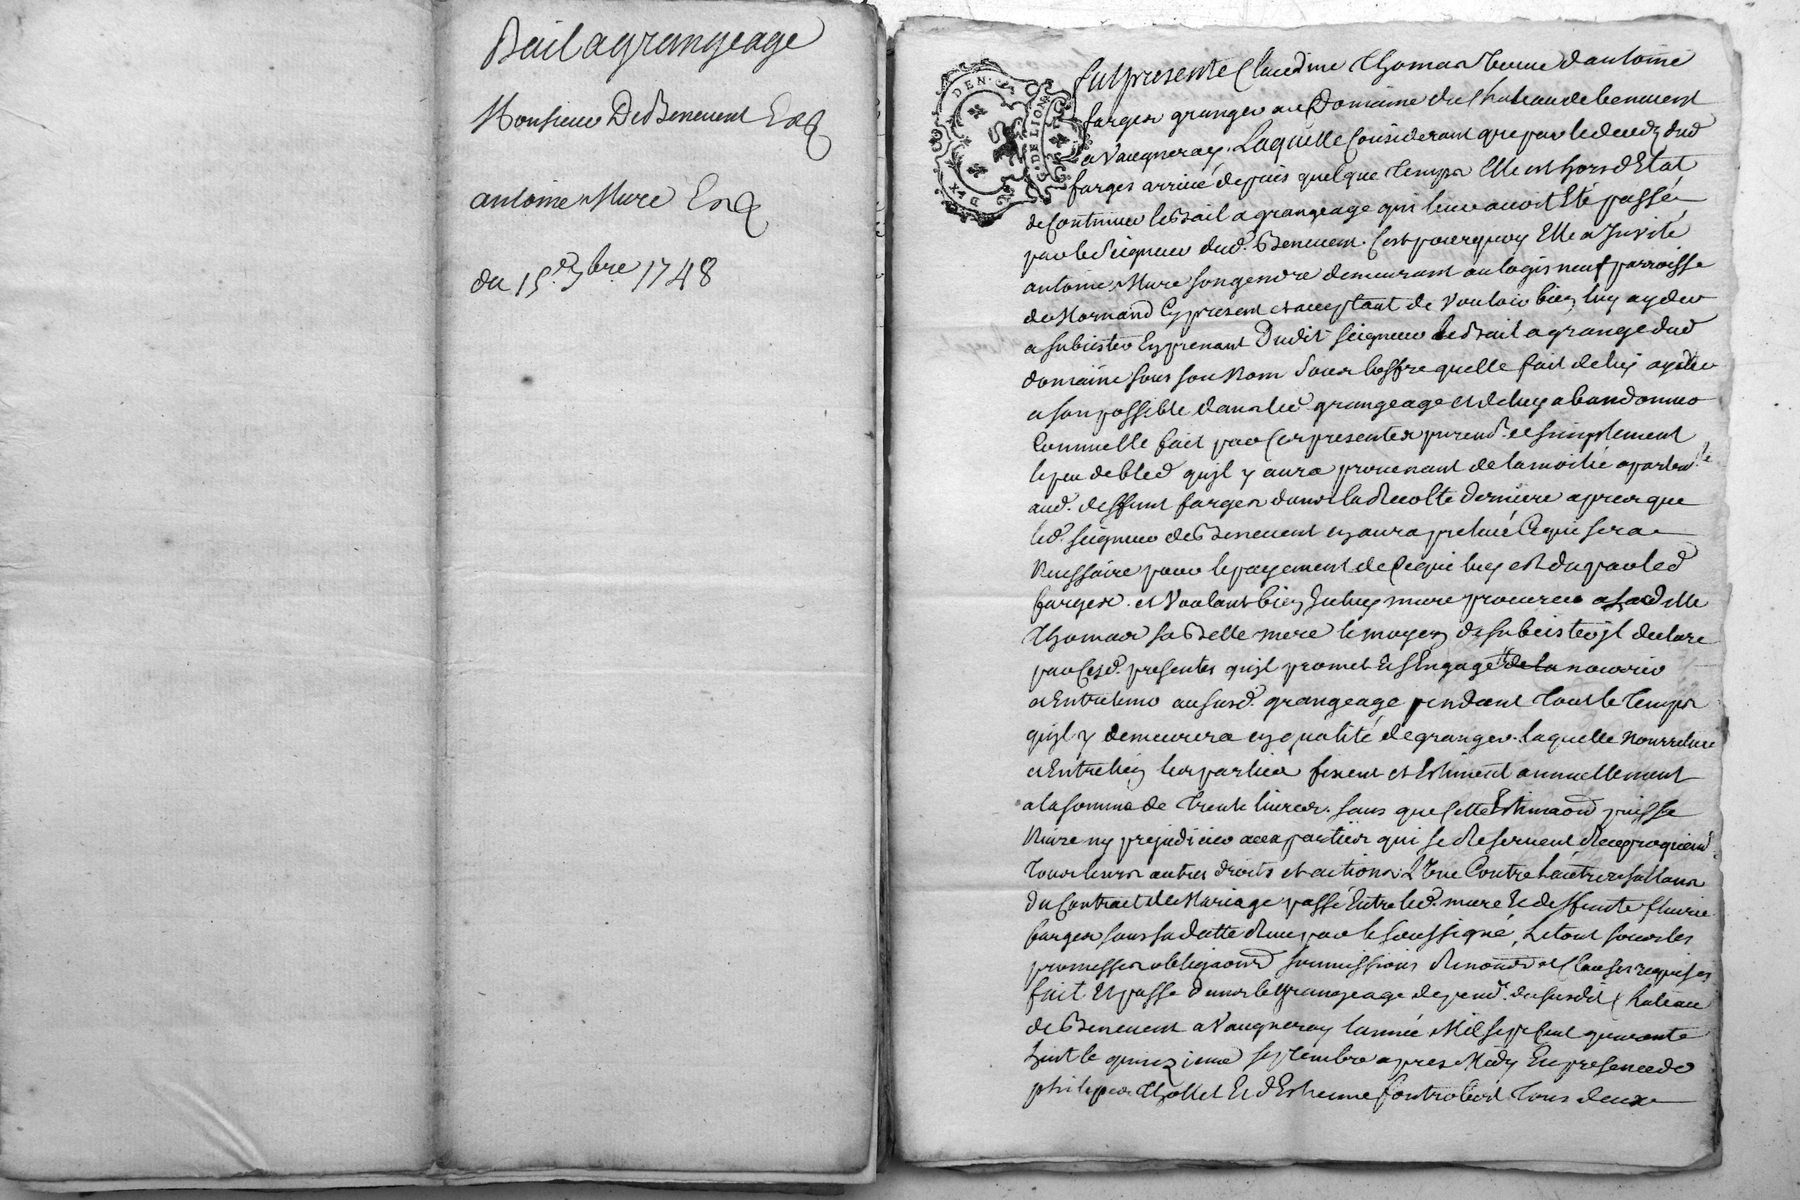 Bail a grangeage
Monsieur De Benevent Esq
antoine Mure Esq
du 15e 7bre 1748
DEUX DEN
G. DE LION
fut presente Claudine Thomas veuve d'antoine
farges granger au Domaine du Chateau de benevent
a Vaugneray. Laquelle Considerant que par le deceds dud
farges arrivé depuis quelque temps Elle est hors d'Etat
de Continuer le Bail a grangeage qui leur avoit Eté passé
par le Seigneur dud. Benevent. C'est pourquoy Elle a Invité
antoine Mure son gendre demeurant au logis neuf parroisse
de Mornand Cy present et acceptant de vouloir bien luy ayder
a subister En prenant Dudit seigneur le Bail a grange dud
domaine sous son Nom sous l'offre quelle fait de luy ayder
a son possible dans led grangeage et de luy abandonner
Comme Elle fait par Ces presentes purem. et simplement
le peu de bled qu'jl y aura provenant de la moitié apartente
aud. deffunt farges dans la Recolte derniere apres que
led. seigneur de Benevent en aura prelevé Ce qui sera
Necessaire pour le payement de Ce qui luy est du par led
farges. et voulant bien Iceluy mure procurer a lad elle
Thomas sa Belle mere le moyen de subcister jl declare
par Cesd. presentes qu'jl promet Et s'Engage de la nourrir
et Entretenir au susd. grangeage pendant tout le temps
qu'jl y demeurera en qualité de granger. laquelle Nourriture
et Entretien les parties fixent et Estiment annuellement
a la somme de trente livres. sans que Cette Estimaōn puisse
Nuire ny prejudicier aux parties qui se Reservent Reciproquemt
tous leurs autres droits et actions L'Une Contre L'autre resultans
du Contract de Mariage passé Entre led. mure Et deffunte fleurie
farges sous sa datte Reçu par le soussigné, Le tout sous les
promesses obligaōns soumissions Renonōns et Clauses requises
fait Et passé dans le grangeage depend. du susdit Chateau
de Benevent a Vaugneray l'année Mil sept Cent quarante
huit le quinzieme septembre apres Midy En presence de
philipes Thollet Et d'Estienne tous deux